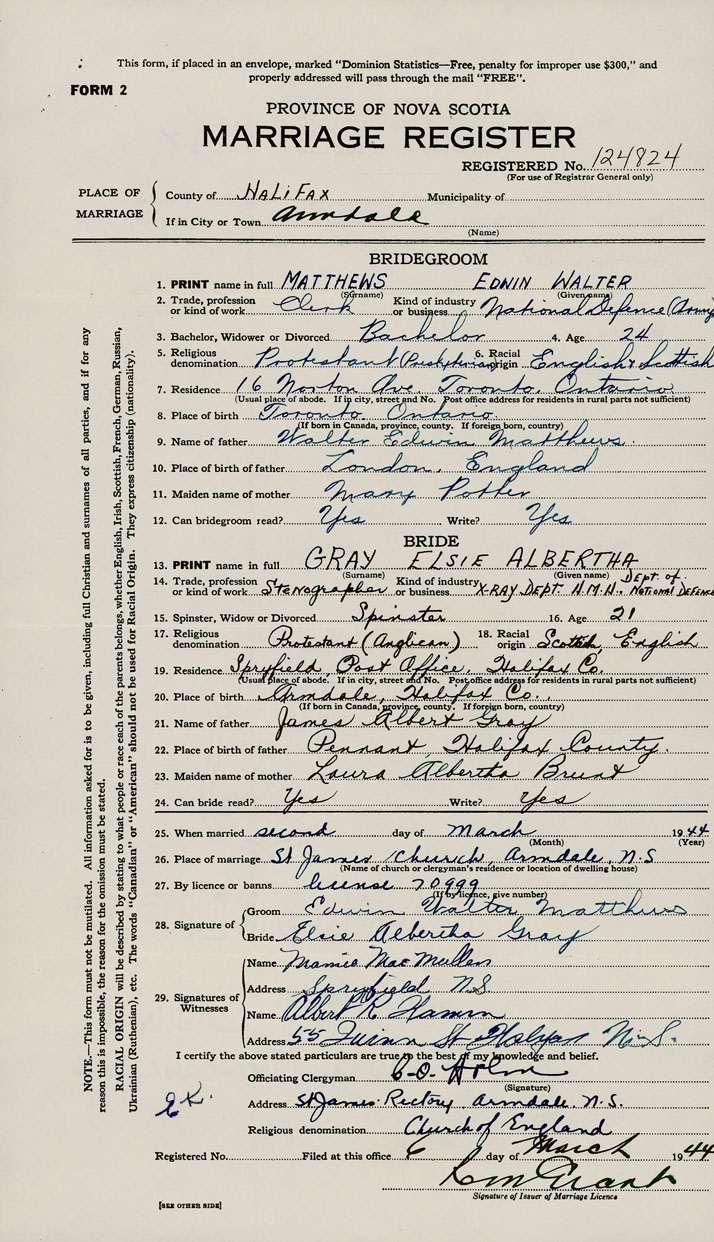 This form, if placed in an envelope, marked "Dominion Statistics—Free, penalty for improper use $300," and
properly addressed will pass through the mail "FREE".
FORM 2
PROVINCE OF NOVA SCOTIA
MARRIAGE REGISTER
REGISTERED No. 124824
(For use of Registrar General only)
PLACE OF MARRIAGE
County of HALIFAX Municipality of
If in City or Town Armdale
(Name)
BRIDEGROOM
1. PRINT name in full MATTHEWS EDWIN WALTER
(Surname) (Given name)
2. Trade, profession or kind of work Clerk Kind of industry or business National Defence (Army)
3. Bachelor, Widower or Divorced Bachelor 4. Age 24
5. Religious denomination Protestant (Presbyterian) 6. Racial origin English & Scottish
7. Residence 16 Norton Ave Toronto, Ontario
(Usual place of abode. If in city, street and No. Post office address for residents in rural parts not sufficient)
8. Place of birth Toronto Ontario
(If born in Canada, province, county. If foreign born, country)
9. Name of father Walter Edwin Matthews.
10. Place of birth of father London, England
11. Maiden name of mother Mary Potter
12. Can bridegroom read? Yes Write? Yes
BRIDE
13. PRINT name in full GRAY ELSIE ALBERTHA
(Surname) (Given name)
14. Trade, profession or kind of work Stenographer Kind of industry or business X-RAY DEPT. H.M.H., Dept. of NATIONAL DEFENCE
15. Spinster, Widow or Divorced Spinster 16. Age 21
17. Religious denomination Protestant (Anglican) 18. Racial origin Scottish, English
19. Residence Spryfield, Post Office, Halifax Co.
(Usual place of abode. If in city, street and No. Post office address for residents in rural parts not sufficient)
20. Place of birth Armdale, Halifax Co.,
(If born in Canada, province, county. If foreign born, country)
21. Name of father James Albert Gray
22. Place of birth of father Pennant, Halifax County.
23. Maiden name of mother Laura Albertha Brunt
24. Can bride read? Yes Write? Yes
25. When married second day of March 1944
(Month) (Year)
26. Place of marriage St James Church, Armdale, N.S
(Name of church or clergyman's residence or location of dwelling house)
27. By licence or banns license 70999
(If by licence, give number)
28. Signature of
Groom Edwin Walter Matthews
Bride Elsie Albertha Gray
29. Signatures of Witnesses
Name Mamie MacMullen
Address Spryfield N.S
Name Albert R Hamm
Address 55 Halifax N.S.
I certify the above stated particulars are true to the best of my knowledge and belief.
Officiating Clergyman
(Signature)
Address St James Rectory, Armdale, N.S.
Religious denomination Church of England
Registered No. Filed at this office 6 day of March 1944
Grant
Signature of Issuer of Marriage Licence
[SEE OTHER SIDE]
NOTE.—This form must not be mutilated. All information asked for is to be given, including full Christian and surnames of all parties, and if for any
reason this is impossible, the reason for the omission must be stated.
RACIAL ORIGIN will be described by stating to what people or race each of the parents belongs, whether English, Irish, Scottish, French, German, Russian,
Ukrainian (Ruthenian), etc. The words "Canadian" or "American" should not be used for Racial Origin. They express citizenship (nationality).